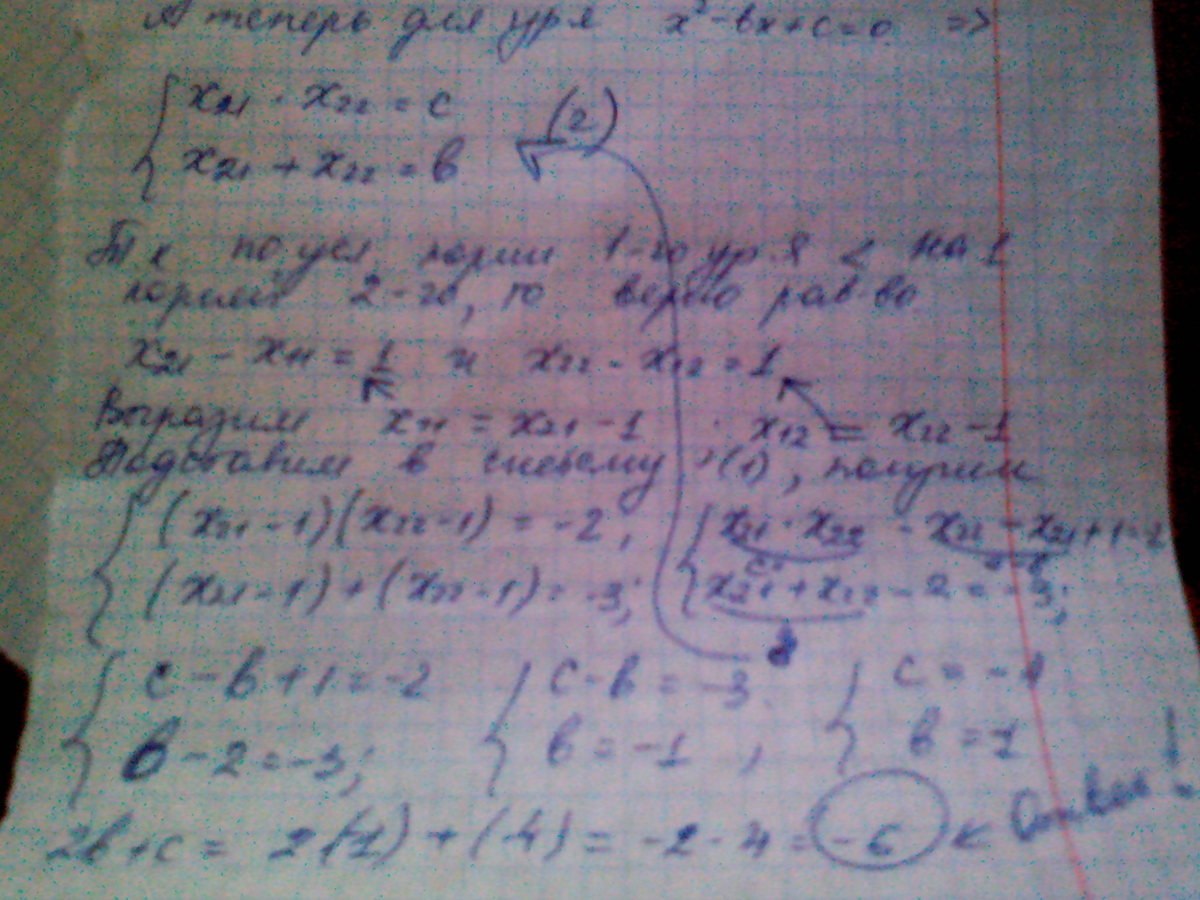 А теперь для ур-я x² - bx + c = 0 =>
x₂₁ · x₂₂ = c
(2)
x₂₁ + x₂₂ = b
Т к по усл. корни 1-го ур-я < на 1
корней 2-го, то верно рав-во
x₂₁ - x₁₁ = 1 и x₂₂ - x₁₂ = 1
Выразим x₁₁ = x₂₁ - 1 x₁₂ = x₂₂ - 1
Подставим в систему (1), получим
(x₂₁ - 1)(x₂₂ - 1) = -2; x₂₁ · x₂₂ - x₂₂ - x₂₁ + 1 = -2
(x₂₁ - 1) + (x₂₂ - 1) = -3; x₂₁ + x₂₂ - 2 = -3;
c - b + 1 = -2 c - b = -3 c = -4
b - 2 = -3; b = -1, b = -1
2b + c = 2(-1) + (-4) = -2 - 4 = -6 < Ответ!